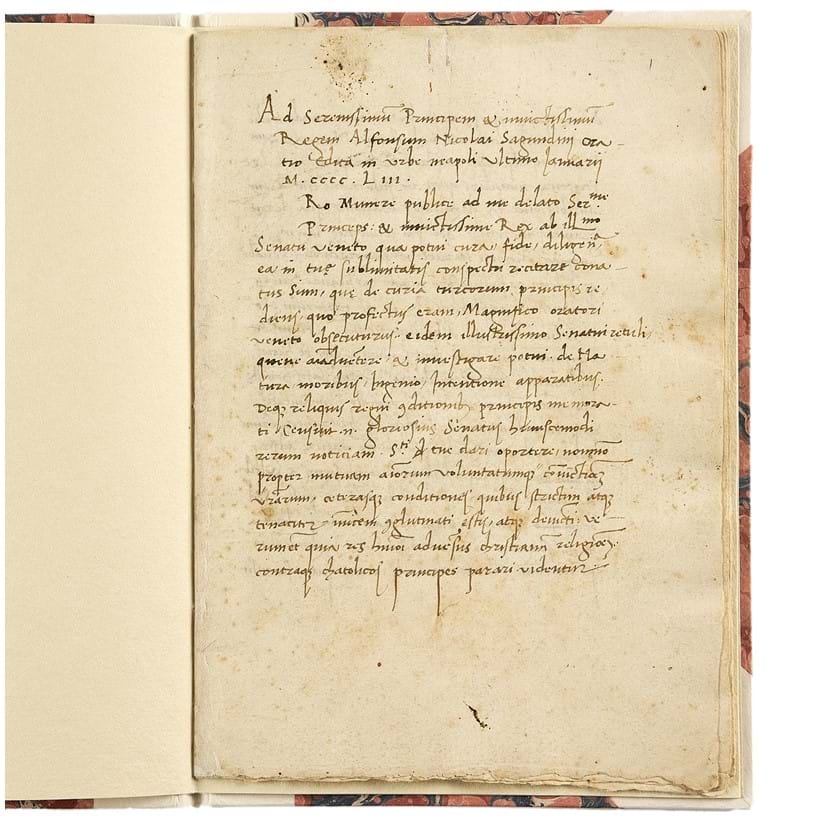 Ad Serenissimū Principem & invictissimū
Regem Alfonsum Nicolai Sagundini ora-
tio Edita in urbe neapoli ultimo Januarij
M.cccc.LIII.
Ro Munere publice ad me delato Ser.me
Princeps: & invictissime Rex ab illmo
Senatu veneto qua potui cura, fide, diligen
ea in tuę sublimitatis conspectu recitare cona-
tus Sum, quę de curia turcorum principis re
diens, quo profectus eram, Magnifico oratori
veneto obsecuturus. eidem illustrissimo Senatui retuli,
quene aīadvertere, & investigare potui. de Na
tura moribus, Ingenio, Intentione apparatibus.
Deqꝫ reliquis regni ꝯditionibꝫ principis memora-
ti Censuit .n. gloriosius Senatus huiuscemodi
rerum noticiam. S.ti tue dari oportere, nōmō
propter mutuam aīorum voluntatumqꝫ cōiūctioēꝫ
vr̄arum, ceterasqꝫ conditiones quibus strictim atqꝫ
tenaciter īvicem ꝯglutinati estis, atqꝫ devicti. ve-
rumet quia res huiōi adversus christianā religioēꝫ,
contraqꝫ chatolicos principes parari videntur.